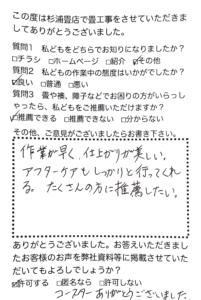 この度は杉浦畳店で畳工事をさせていただきま
してありがとうございました。
質問1 私どもをどちらでお知りになりましたか？
□チラシ □ホームページ □紹介 ☑その他
質問2 私どもの作業中の態度はいかがでしたか？
☑良い □普通 □悪い
質問3 畳や襖、障子などでお困りの方がいらっし
ゃったら、私どもをご推薦いただけますか？
☑推薦できる □推薦できない □分からない
その他、ご意見がございましたらお書き下さい。
作業が早く、仕上がりが美しい。
アフターケアもしっかりと行ってくれ
る。たくさんの方に推薦したい。
ありがとうございました。お答えいただきまし
たお客様のお声を弊社資料等に掲載させていた
だいてもよろしでしょうか？
☑許可する □匿名なら □許可しない
コースター ありがとうございました